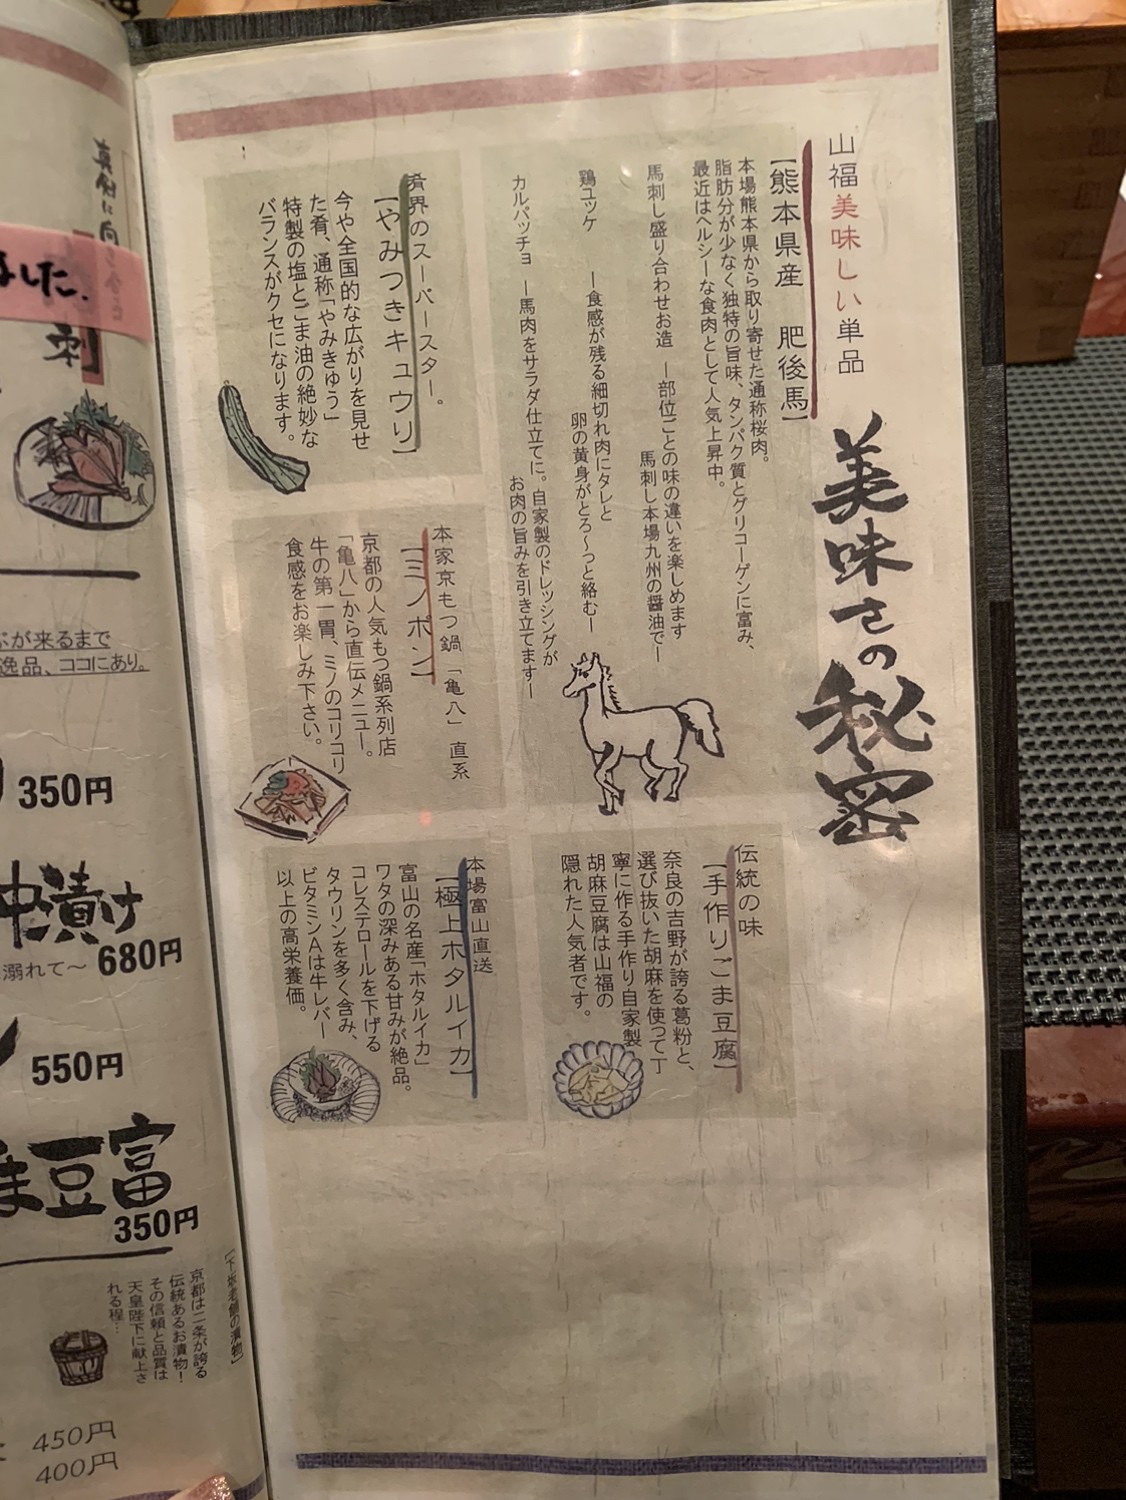 山福美味しい単品
美味さの秘密
【熊本県産 肥後馬】
本場熊本県から取り寄せた通称桜肉。
脂肪分が少なく独特の旨味、タンパク質とグリコーゲンに富み、
最近はヘルシーな食肉として人気上昇中。
馬刺し盛り合わせお造 ー部位ごとの味の違いを楽しめます
馬刺し本場九州の醤油でー
鶏ユッケ ー食感が残る細切れ肉にタレと
卵の黄身がとろ〜っと絡むー
カルパッチョ ー馬肉をサラダ仕立てに。自家製のドレッシングが
お肉の旨みを引き立てますー
肴界のスーパースター。
【やみつきキュウリ】
今や全国的な広がりを見せ
た肴、通称「やみきゅう」
特製の塩とごま油の絶妙な
バランスがクセになります。
本家京もつ鍋「亀八」直系
【ミノポン】
京都の人気もつ鍋系列店
「亀八」から直伝メニュー。
牛の第一胃、ミノのコリコリ
食感をお楽しみ下さい。
伝統の味
【手作りごま豆腐】
奈良の吉野が誇る葛粉と、
選び抜いた胡麻を使って丁
寧に作る手作り自家製
胡麻豆腐は山福の
隠れた人気者です。
本場富山直送
【極上ホタルイカ】
富山の名産「ホタルイカ」
ワタの深みある甘みが絶品。
コレステロールを下げる
タウリンを多く含み、
ビタミンAは牛レバー
以上の高栄養価。
ました.
刺
ぶが来るまで
逸品、ココにあり。
350円
沖漬け
溺れて〜 680円
550円
ま豆富
350円
京都は二条が誇る
伝統あるお漬物！
その信頼と品質は
天皇陛下に献上さ
れる程…
450円
400円